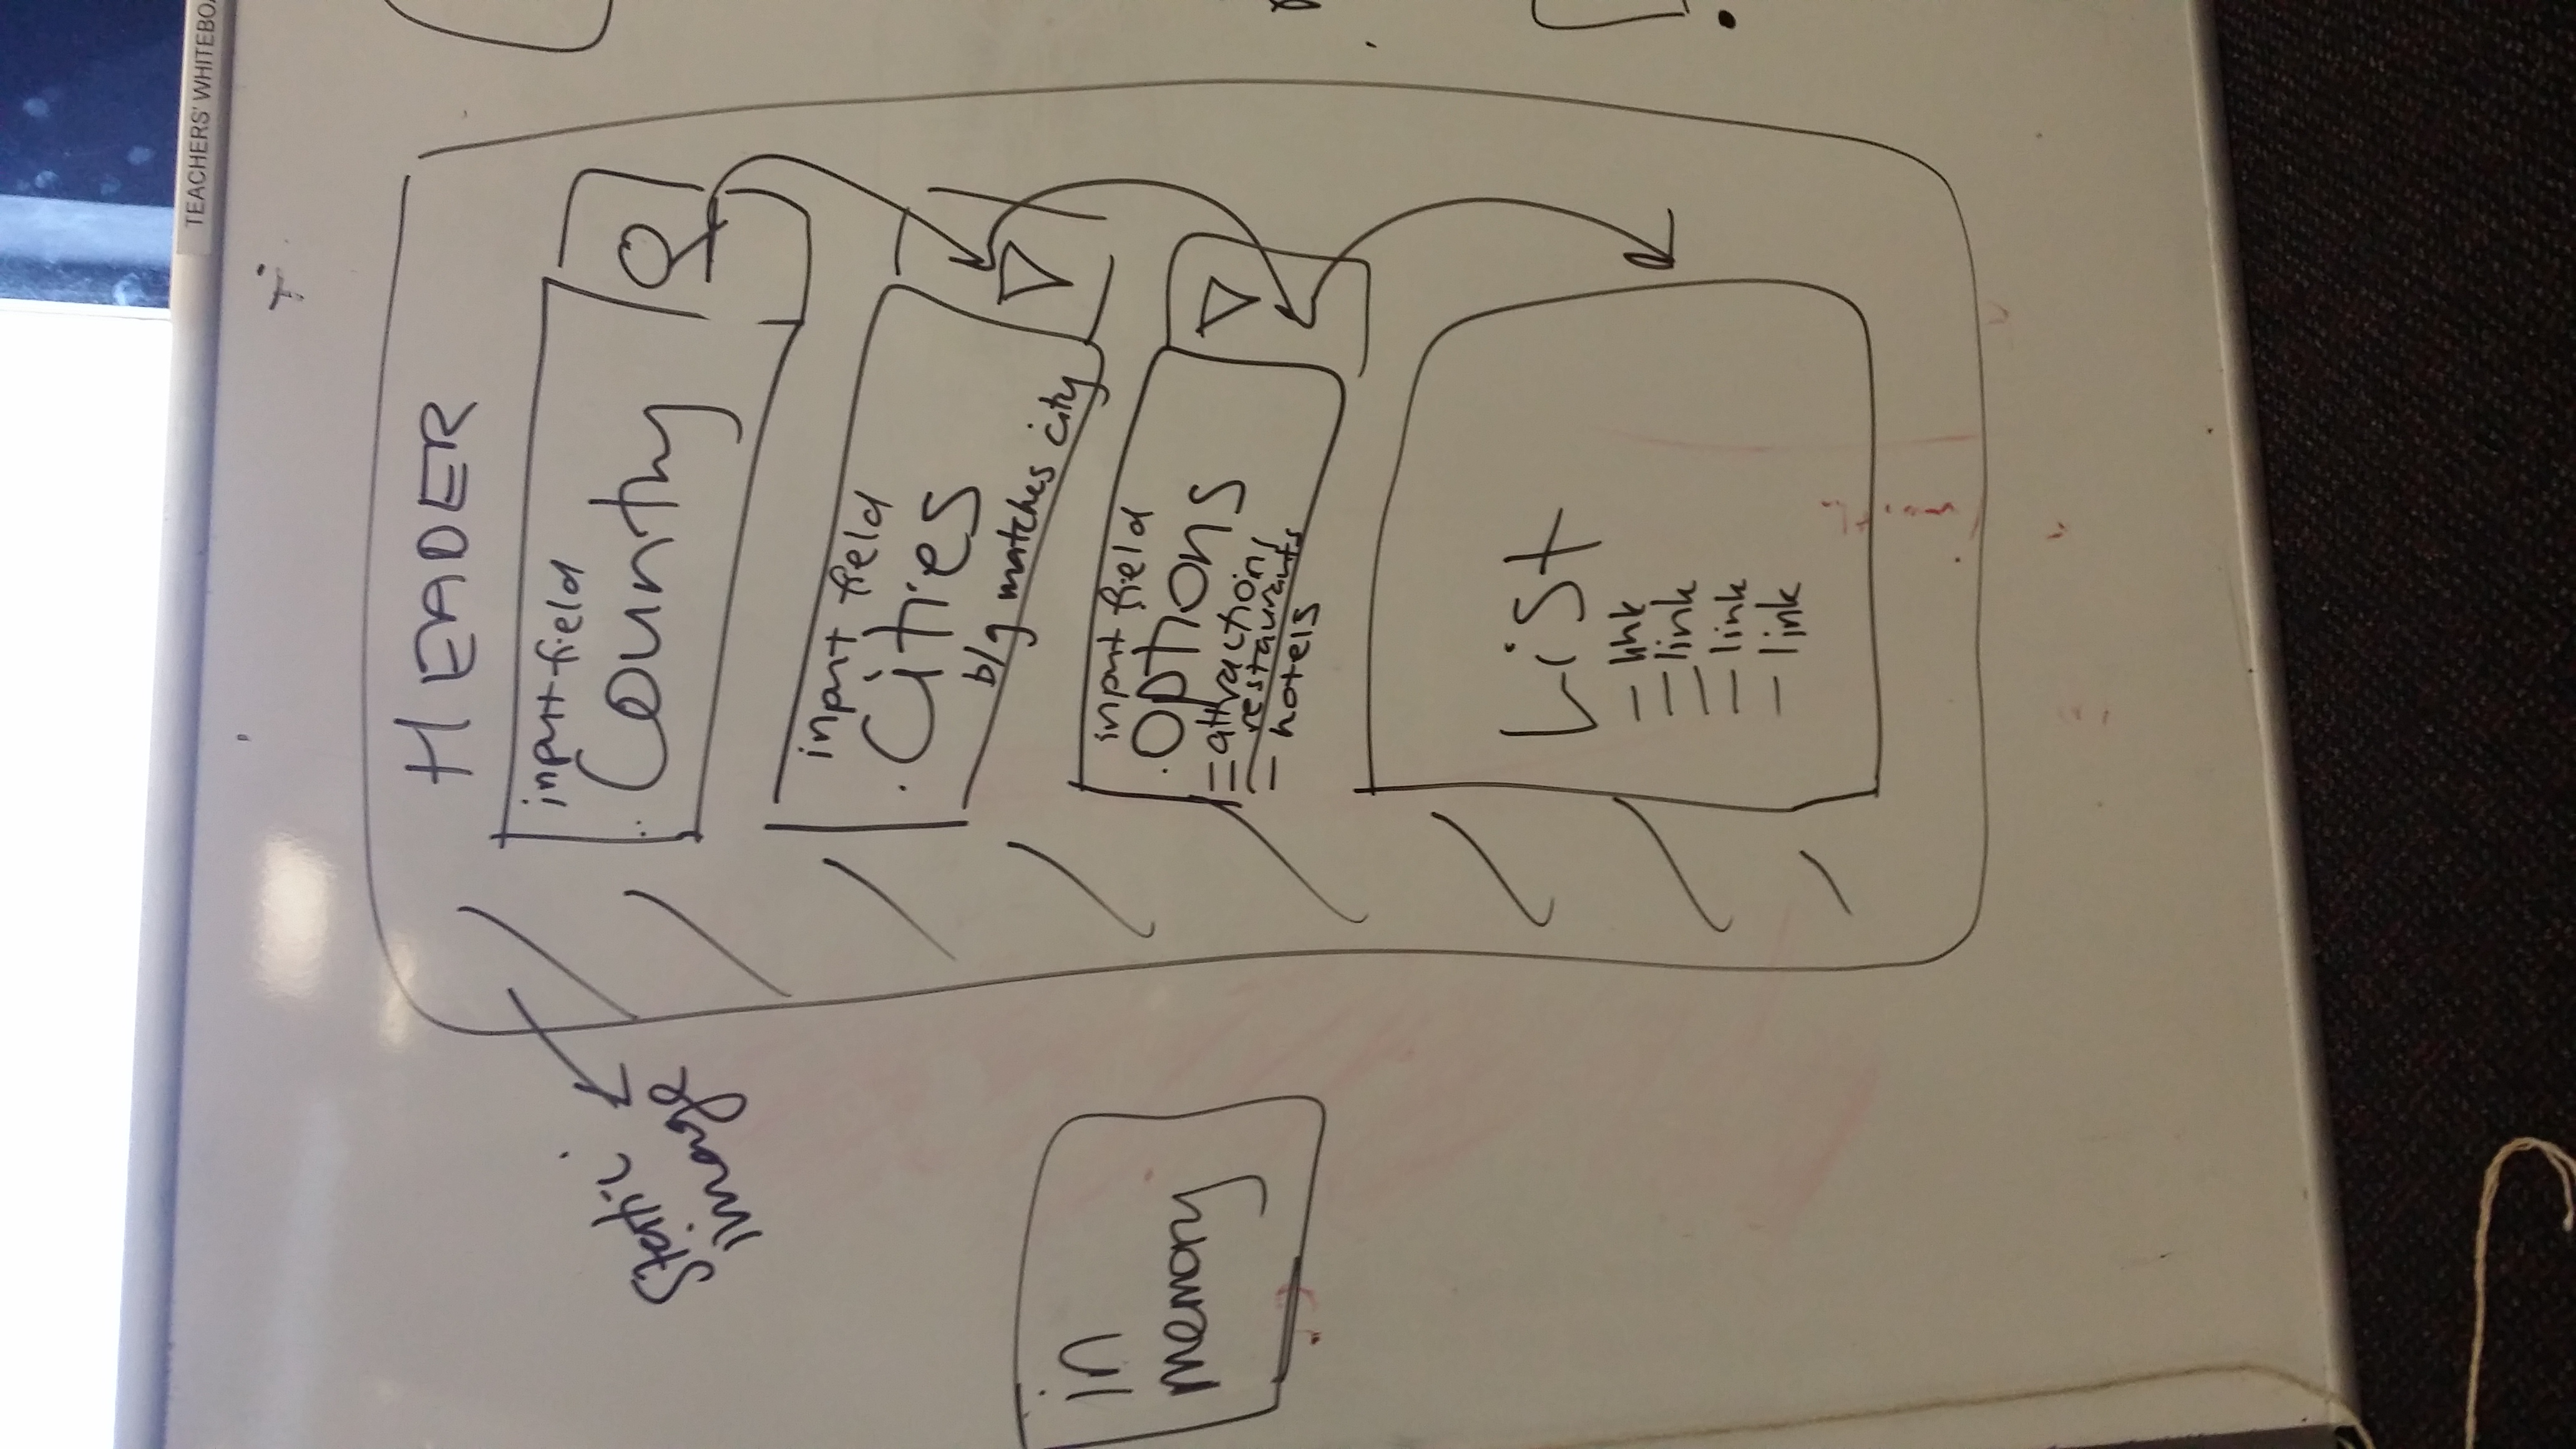 TEACHERS' WHITEBOA
HEADER
input field
Country
static
image
input field
Cities
b/g matches city
in
memory
input field
.options
= attractions
- restaurants
- hotels
List
- link
- link
- link
- link